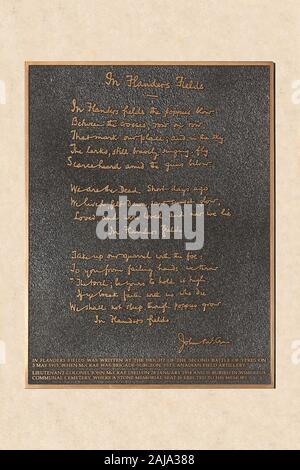 In Flanders Fields
In Flanders fields the poppies blow
Between the crosses, row on row,
That mark our place; and in the sky
The larks, still bravely singing, fly
Scarce heard amid the guns below.
We are the Dead. Short days ago
We lived, felt dawn, saw sunset glow,
Loved and were loved, and now we lie
In Flanders fields.
Take up our quarrel with the foe:
To you from failing hands we throw
The torch; be yours to hold it high.
If ye break faith with us who die
We shall not sleep, though poppies grow
In Flanders fields
John McCrae
IN FLANDERS FIELDS WAS WRITTEN AT THE HEIGHT OF THE SECOND BATTLE OF YPRES ON
3 MAY 1915, WHEN McCRAE WAS BRIGADE-SURGEON, FIRST CANADIAN FIELD ARTILLERY.
LIEUTENANT-COLONEL JOHN McCRAE DIED ON 28 JANUARY 1918 AND IS BURIED IN WIMEREUX
COMMUNAL CEMETERY, WHERE A STONE MEMORIAL SEAT IS ERECTED TO HIS MEMORY.
alamy
alamy
Image ID: 2AJA388
www.alamy.com